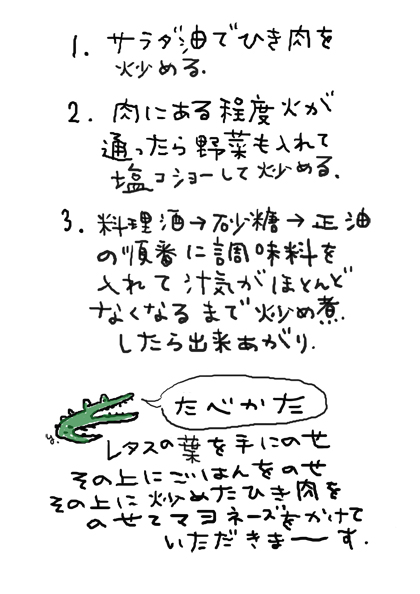 1. サラダ油でひき肉を
炒める.
2. 肉にある程度火が
通ったら野菜も入れて
塩コショーして炒める.
3. 料理酒→砂糖→正油
の順番に調味料を
入れて汁気がほとんど
なくなるまで炒め煮.
したら出来あがり.
たべかた
レタスの葉を手にのせ
その上にごはんをのせ
その上に炒めたひき肉を
のせてマヨネーズをかけて
いただきまーす.